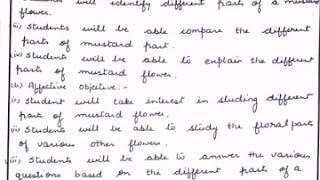 students will identify different parts of a mustard
flower.
(iii) Students will be able compare the different
parts of mustard part.
(iv) Students will be able to explain the different
parts of mustard flower.
(b) Affective Objective:-
(i) Student will take interest in studing different
part of mustard flower.
(ii) Students will be able to study the floral parts
of various other flowers.
(iii) Students will be able to answer the various
questions based on the different parts of a